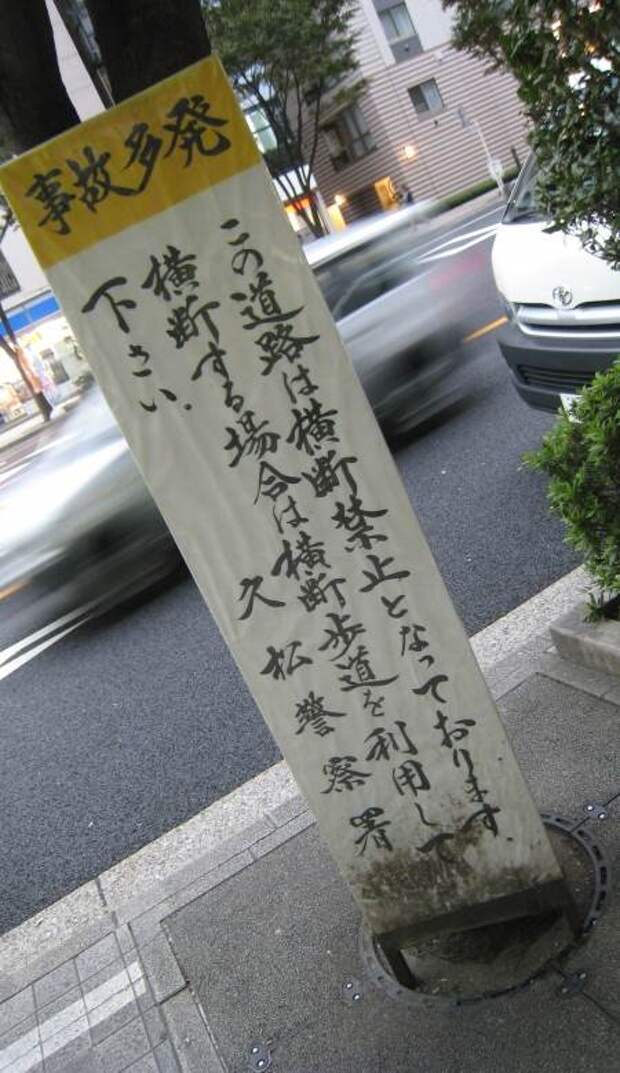 事故多発
この道路は横断禁止となっております.
横断する場合は横断歩道を利用して
下さい.
久松警察署